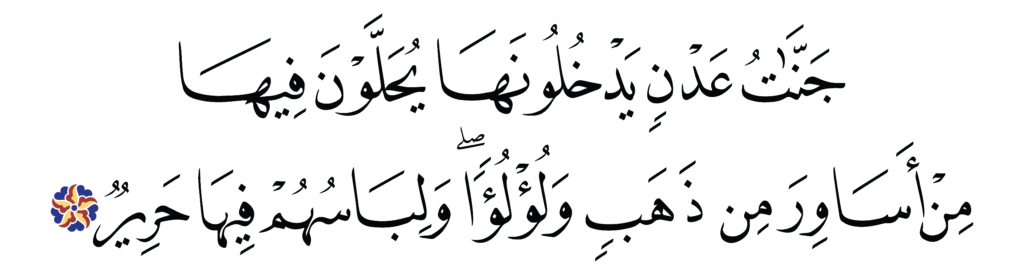 جَنَّٰتُ عَدْنٍ يَدْخُلُونَهَا يُحَلَّوْنَ فِيهَا
مِنْ أَسَاوِرَ مِن ذَهَبٍ وَلُؤْلُؤًا ۖ وَلِبَاسُهُمْ فِيهَا حَرِيرٌ